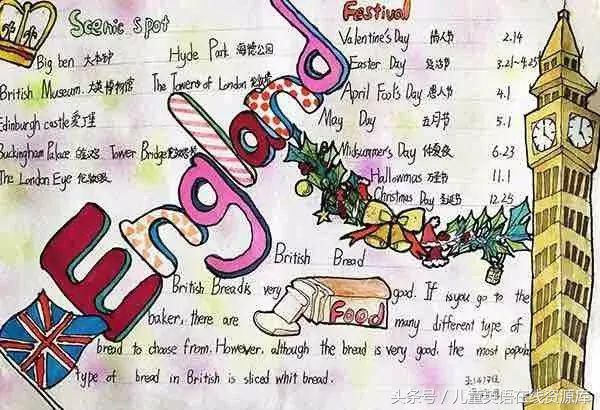 Scenic spot
Big ben 大本钟 Hyde Park 海德公园
British Museum 大英博物馆 The Towers of London
Edinburgh castle
Buckingham Palace Tower Bridge
The London Eye 伦敦眼
England
Festival
Valentine's Day 情人节 2.14
Easter Day 复活节 3.21-4.25
April Fool's Day 愚人节 4.1
May Day 五月节 5.1
Midsummer's Day 仲夏夜 6.23
Hallowmas 万圣节 11.1
Christmas Day 圣诞节 12.25
British Bread
British Bread is very good. If is you go to the
baker, there are many different type of
bread to choose from. However, although the bread is very good, the most popular
type of bread in British is sliced whit bread.
Food
头条号 / 儿童英语在线资源库